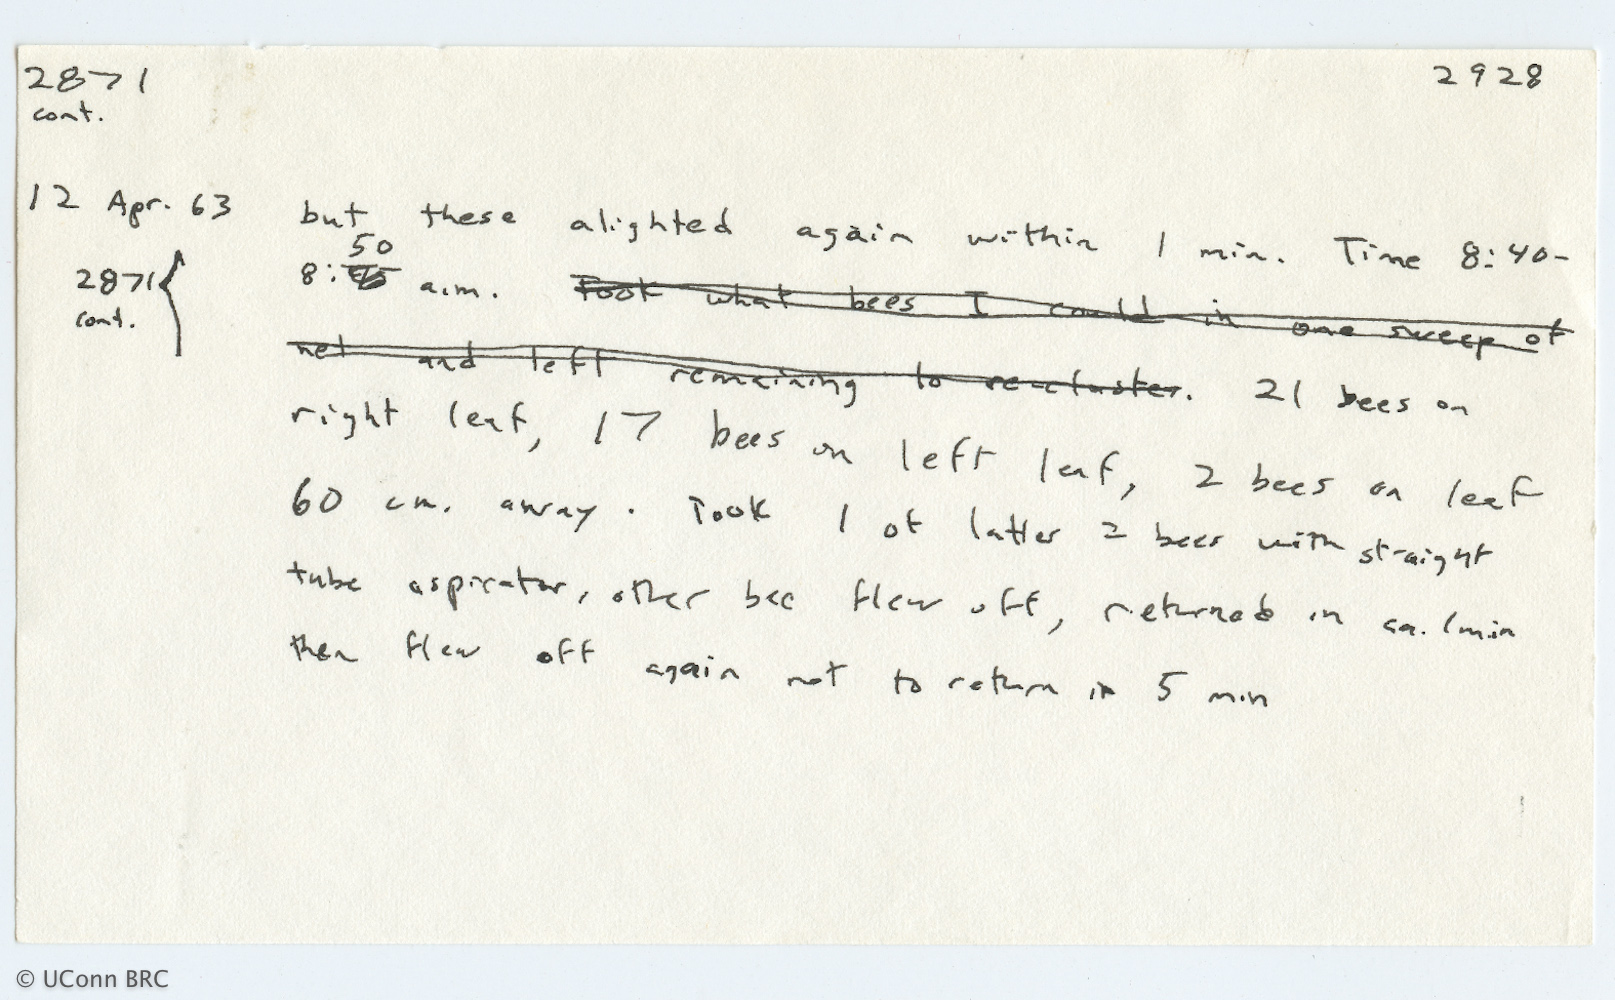 2871
cont.
2928
12 Apr. 63
2871
cont.
but these alighted again within 1 min. Time 8:40-
50
8: a.m. Took what bees I could in one sweep of
net and left remaining to re-cluster. 21 bees on
right leaf, 17 bees on left leaf, 2 bees on leaf
60 cm. away. Took 1 of latter 2 bees with straight
tube aspirator, other bee flew off, returned in ca. 1min
then flew off again not to return in 5 min
© UConn BRC